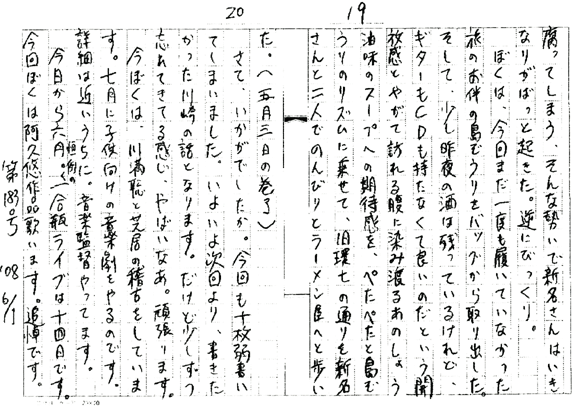 19
腐ってしまう、そんな勢いで新名さんはいき
なりがばっと起きた。逆にびっくり。
ぼくは、今回まだ一度も履いていなかった
旅のお伴の島ぞうりをバッグから取り出した。
そして、少し昨夜の酒は残っているけれど、
ギターもCDも持たなくて良いのだという開
放感とやがて訪れる腹に染み渡るあのしょう
油味のスープへの期待感を、ぺたぺたと島ぞ
うりのリズムに乗せて、旧環七の通りを新名
さんと二人でのんびりとラーメン屋へと歩い
20
た。(五月三日の巻了)
さて、いかがでしたか。今回も十枚弱書い
てしまいました。いよいよ次回より、書きた
かった川崎の話となります。だけど少しずつ
忘れてきてる感じ。やばいなあ。頑張ります。
今ぼくは、川満聡と芝居の稽古をしていま
す。七月に子供向けの音楽劇をやるのです。
詳細は近いうちに。音楽監督やってます。
今日から六月。恒例の一合瓶ライブは十四日です。
今回ぼくは阿久悠作品歌います。追悼です。
第183号 '08 6/1